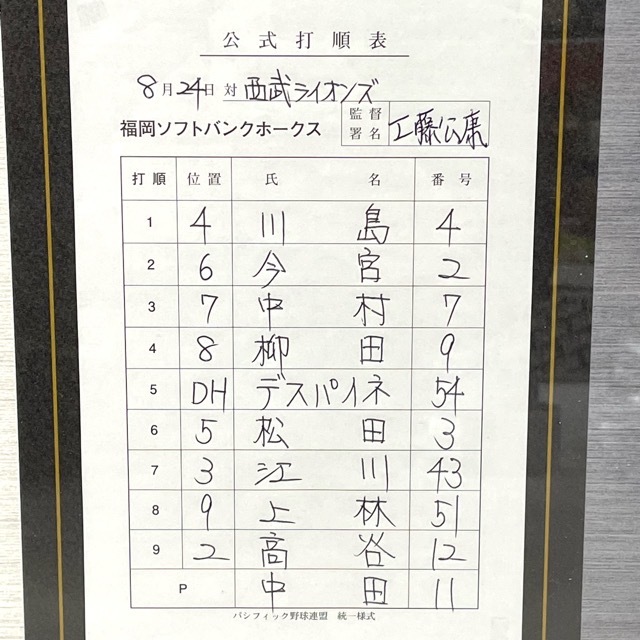 公式打順表
8月24日 対 西武ライオンズ
福岡ソフトバンクホークス 監督署名 工藤公康
打順 位置 氏名 番号
1 4 川島 4
2 6 今宮 2
3 7 中村 7
4 8 柳田 9
5 DH デスパイネ 54
6 5 松田 3
7 3 江川 43
8 9 上林 51
9 2 高谷 12
P 中田 11
パシフィック野球連盟 統一様式